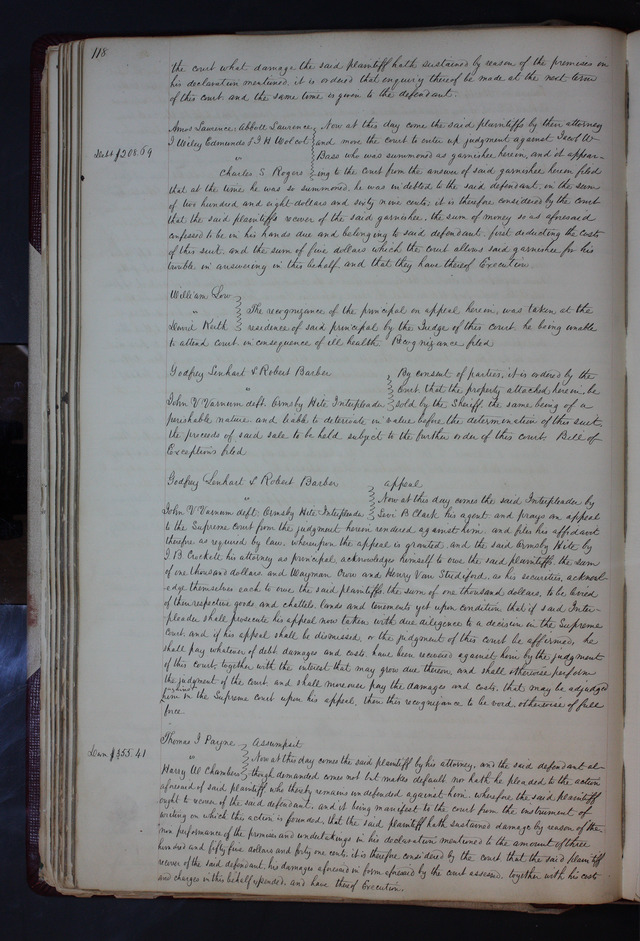 118
the court what damage the said plaintiff hath sustained by reason of the premises in
his declaration mentioned, it is ordered that enquiry thereof be made at the next term
of this court and the same time is given to the defendant.
Amos Lawrence, Abbott Lawrence Now at this day come the said plaintiffs by their attorney
Debt $208.69
J Wiley Edmunds & J H Wolcot and move the court to enter up judgment against Jacob W
" Bass who was summoned as garnishee herein, and it appear-
Charles S Rogers ing to the court from the answer of said garnishee herein filed
that at the time he was so summoned, he was indebted to the said defendant, in the sum
of two hundred and eight dollars and sixty nine cents, it is therefore considered by the court
that the said plaintiffs recover of the said garnishee, the sum of money so as aforesaid
confessed to be in his hands due and belonging to said defendant, first deducting the costs
of this suit, and the sum of five dollars which the court allows said garnishee for his
trouble in answering in this behalf, and that they have thereof Execution.
William Low
" The recognizance of the principal on appeal herein, was taken at the
Keith residence of said principal by the Judge of this court, he being unable
to attend court in consequence of ill health Recognizance filed
Godfrey Lenhart & Robert Barber By consent of parties, it is ordered by the
" Court that the property attached herein, be
John V Varnum deft. Ormsby Hite Interpleader sold by the Sheriff, the same being of a
perishable nature and liable to deteriate in value before the determination of this suit
the proceeds of said sale to be held subject to the further order of this court Bill of
Exceptions filed
Godfrey Lenhart & Robert Barber appeal
" Now at this day comes the said Interpleader by
John V Varnum deft, Ormsby Hite Interpleader Levi B Clark his agent and prays an appeal
to the Supreme court from the judgment herein rendered against him and files his affidavit
therefor as required by law, whereupon the appeal is granted, and the said Ormsby Hite, by
J. B Crockett his attorney as principal, acknowledges himself to owe the said plaintiffs the sum
of one thousand dollars and Wayman Crow and Henry Van Studiford, as his securities, acknowl-
edge themselves each to owe the said plaintiffs the sum of one thousand dollars, to be levied
of their respective goods and chattels, lands and tenements yet upon condition that if said Inter-
pleader shall prosecute his appeal now taken with due diligence to a decision in the Supreme
Court, and if his appeal shall be dismissed, or the judgment of this court be affirmed, he
shall pay whatever of debt damages and costs, have been recovered against him by the judgment
of this court, together with the interest that may grow due thereon, and shall otherwise perform
the judgment of the court and shall moreover pay the damages and costs, that may be adjudged
against
him in the Supreme court upon his appeal, then this recognizance to be void, otherwise of full
force
Thomas J Payne Assumpsit
Dam $355.41
" Now at this day comes the said plaintiff by his attorney, and the said defendant al-
Harry W Chambers though demanded comes not but makes default nor hath he pleaded to the action
aforesaid of said plaintiff who thereby remains undefended against him. wherefore the said plaintiff
ought to recover of the said defendant, and it being manifest to the court from the instrument of
writing on which the action is founded, that the said plaintiff hath sustained damage by reason of the
non performance of the promises and undertakings in his declaration mentioned to the amount of three
hundred and fifty five dollars and forty one cents, it is therefore considered by the court that the said plaintiff
recover of the said defendant, his damages aforesaid in form aforesaid by the court assessed, together with his costs
and charges in this behalf expended, and have thereof Execution.